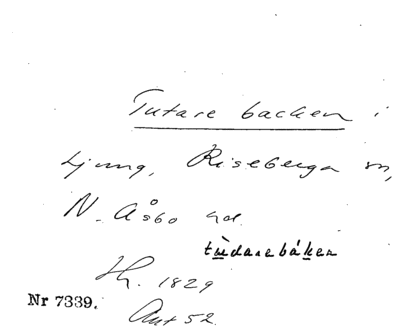 Tutare backen i
Ljung, Riseberga sn,
N. Åsbo hd.
tùdarebáken
Lh. 1829
Nr 7339.
Ant 52.